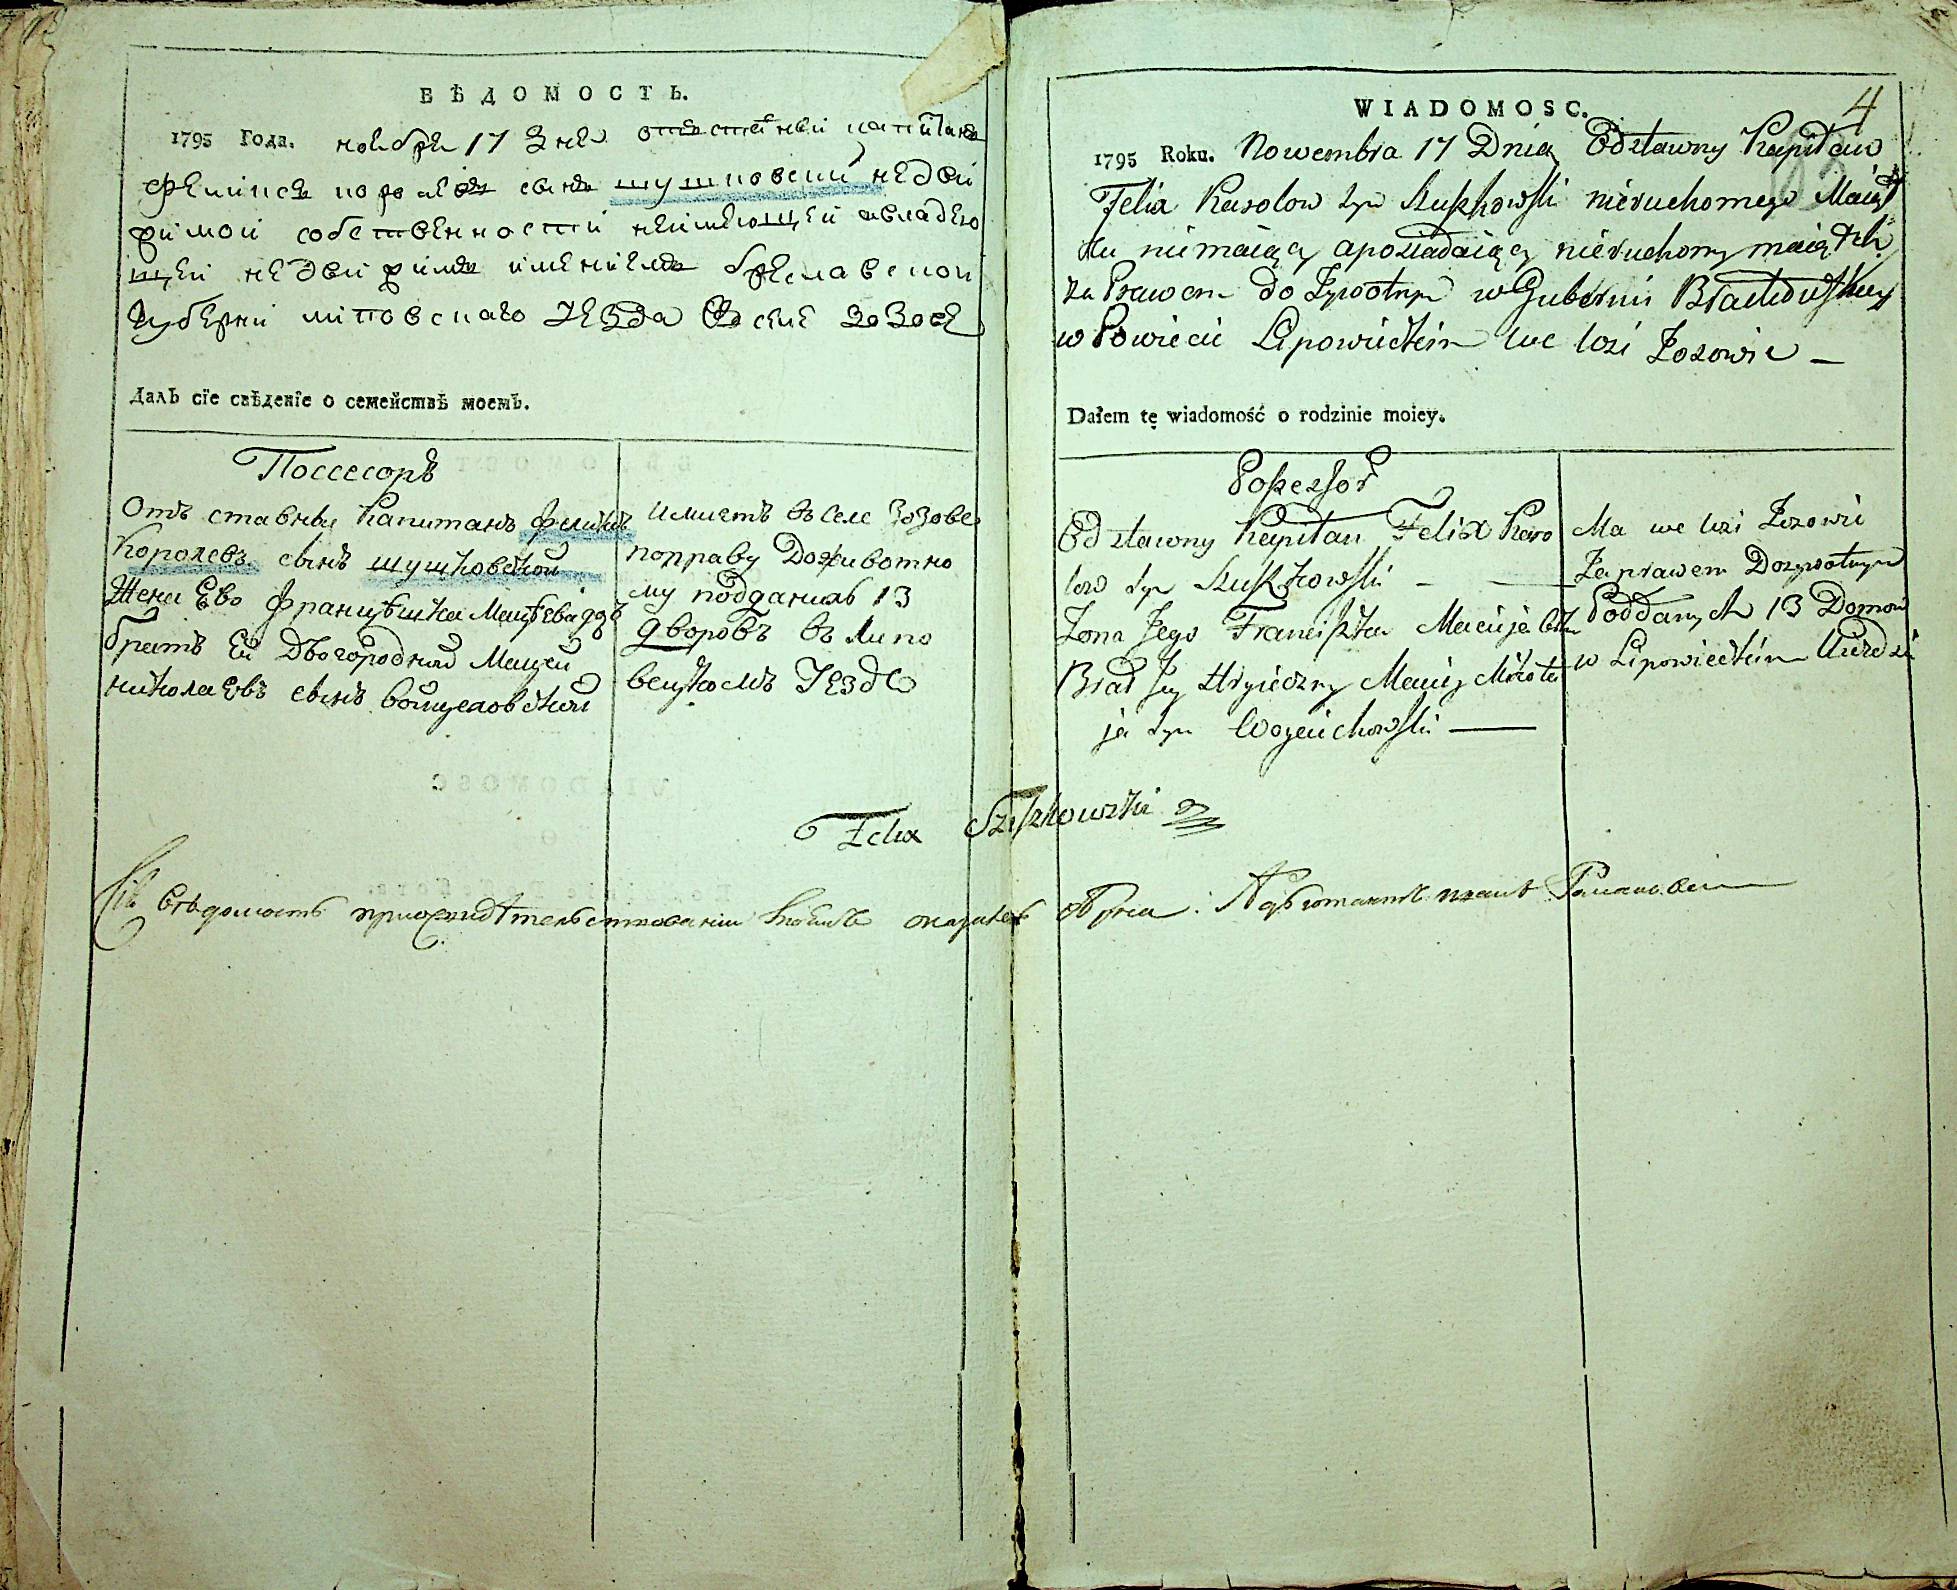 ВѢДОМОСТЬ.
1795 Года. ноября 17 дня отставный капитанъ
феликсъ каролевъ сынъ шушковский недви
римой собственности неимеющей авладею
щей недвиримымъ имениемъ бреславской
губерни липовскаго уезда въ селе зозове
Далъ сїе свѣденїе о семействѣ моемъ.
Поссесоръ
Отъ ставный Капитанъ феликсъ
Королевъ сынъ шушковский
Жена Ево францѣшка
братъ Ей Двогородный Мацей
николаевъ сынъ войцеховский
имиетъ въ селе Зозове
поправу Доживотно
му подданихъ 13
дворовъ въ липо
вецкомъ Уезде
4
WIADOMOSC.
1795 Roku. Nowembra 17 Dnia Odstawny Kapitan
Felix Karolow syn Szuszkowski nieruchomego Maiąt
ku niemaiący aposiadaiący nieruchomy maiątek
za Prawem do Zywotnym w Gubernii Bracławskiey
w Powiecie Lipowieckim we Wsi Zozowie —
Dałem tę wiadomość o rodzinie moiey.
Possessor
Odstawny Kapitan Felix Karo
low syn Szuszkowski —
Zona Jego Franciszka
Brat Jey Stryieczny Maciey Mikoła
ja syn Woyciechowski —
Ma we Wsi Zozowie
Za prawem Dozywotnym
Poddanych 13 Domow
w Lipowieckim Uiezdzie
Felix Szuszkowski
Сія Вѣдомость при освидѣтельствованіи